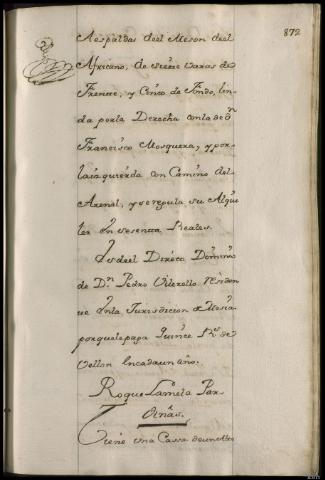 872
Aespaldas deel Meson deel
Africano, de Siette Varas de
Frente, y Cinco de Fondo, lin-
da porla Derecha conla de Dn
Francisco Mosquera, y por-
laizquierda con Camino del
Arenal, y seregula su Alqui
ler En sesenta Reales.
Es del Direcc Dominio
de Dn Pedro Vilerello
Enla Jurisdicion de Mesia
porquelepaga Quince Rs de
Vellon Encadaun año.
Roque Lamela Par-
diñas.
Tiene Una Cassa deunalto